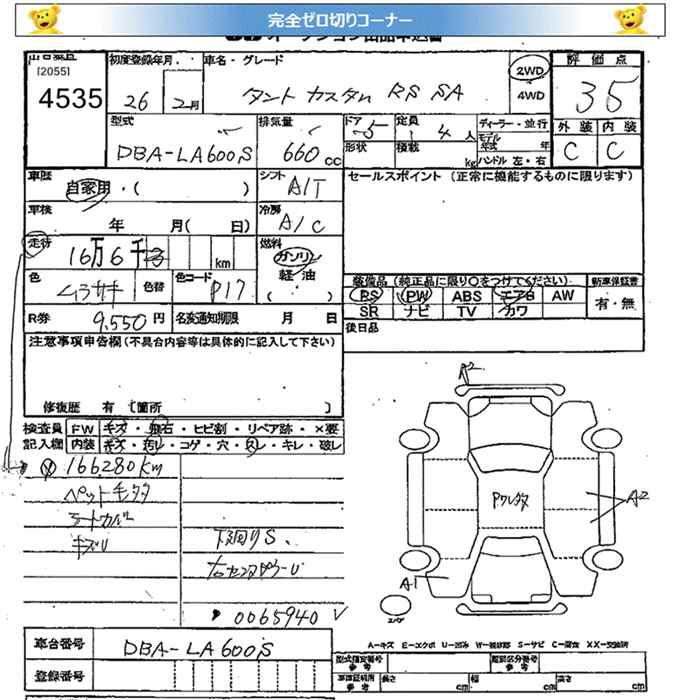 完全ゼロ切りコーナー
[2055]
4535
初度登録年月
26 2月
車名・グレード
タント カスタム RS SA
2WD
4WD
評価点
35
外装 内装
C C
型式
DBA-LA600S
排気量
660 cc
ドア
5
定員
4人
ディーラー・並行
モデル年式 年
形状
積載 kg
ハンドル 左・右
車歴
自家用・( )
シフト
A/T
セールスポイント (正常に機能するものに限ります)
車検
年 月( 日)
冷房
A/C
走行
16万6千 km
燃料
ガソリン
軽油
( )
色
ムラサキ
色替
色コード
P17
装備品 (純正品に限り○をつけてください)
新車保証書
PS PW ABS エアB AW
SR ナビ TV カワ
有・無
R券
9,550円
名変通知期限 月 日
後日品
注意事項申告欄(不具合内容等は具体的に記入して下さい)
修復歴 有 〔箇所 〕
検査員 FW キズ・飛石・ヒビ割・リペア跡・×要
記入欄 内装 キズ・汚レ・コゲ・穴・スレ・キレ・破レ
166280km
ペット毛
シートカバー
キズU
下廻りS、
0065940
A2
A2
A1
A-キズ E-エクボ U-凹み S-サビ C-腐食
車台番号
DBA-LA600S
登録番号
型式指定番号 参考
類別区分番号 参考
車庫証明用 参考
長さ cm
幅 cm
高さ cm